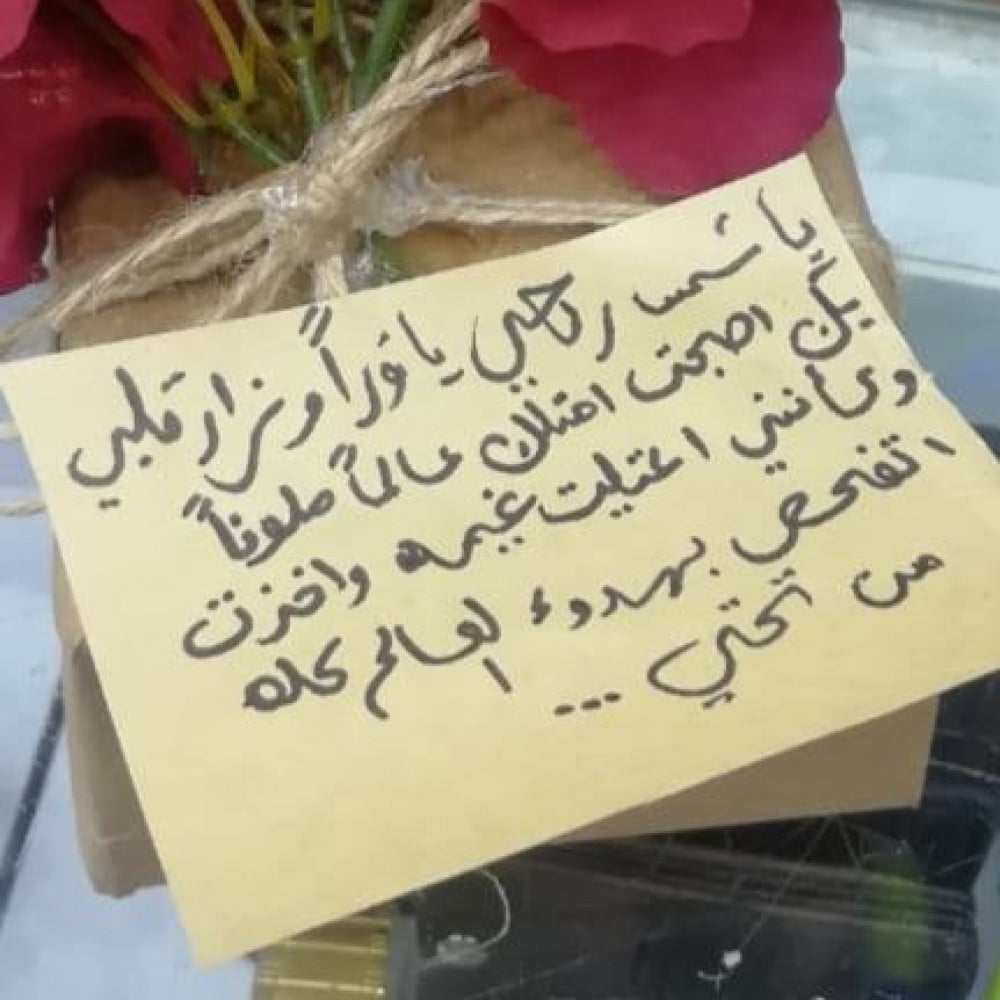 يا شمس رحي يا نوراً ونزار قلبي
بكَ اصبحت امتلك عالماً ملوناً
وكأنني اعتليت غيمه واخذت
اتفحص بهدوء العالم كله
من تحتي ...